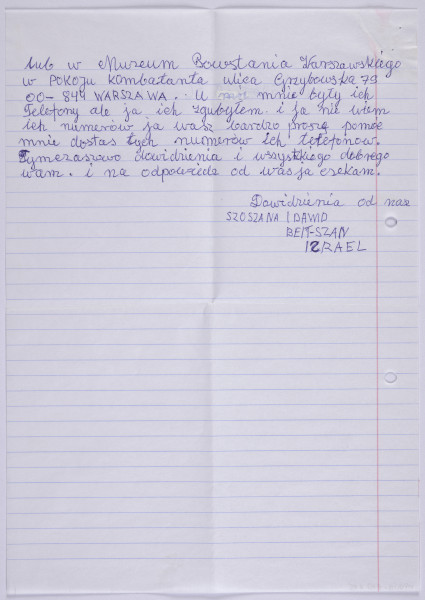 lub w Muzeum Bowstania Warszawskiego
w POKOJU Kombatanta ulica Grzybowska 79
00-844 WARSZAWA. U mnie byty ich
Telefony ale ja ich zgubytem i ja nie wiem
ich numerów ja was bardzo proszę pomóc
mnie dostas tych numerów ich telefonow.
Tymczasowo dowidzienia i wszystkiego dobrego
wam. i na odpowiedz od was ja czekam.
Dowidzienia od nas
SZOSZANA I DAWID
BEIT-SZAN
IZRAEL